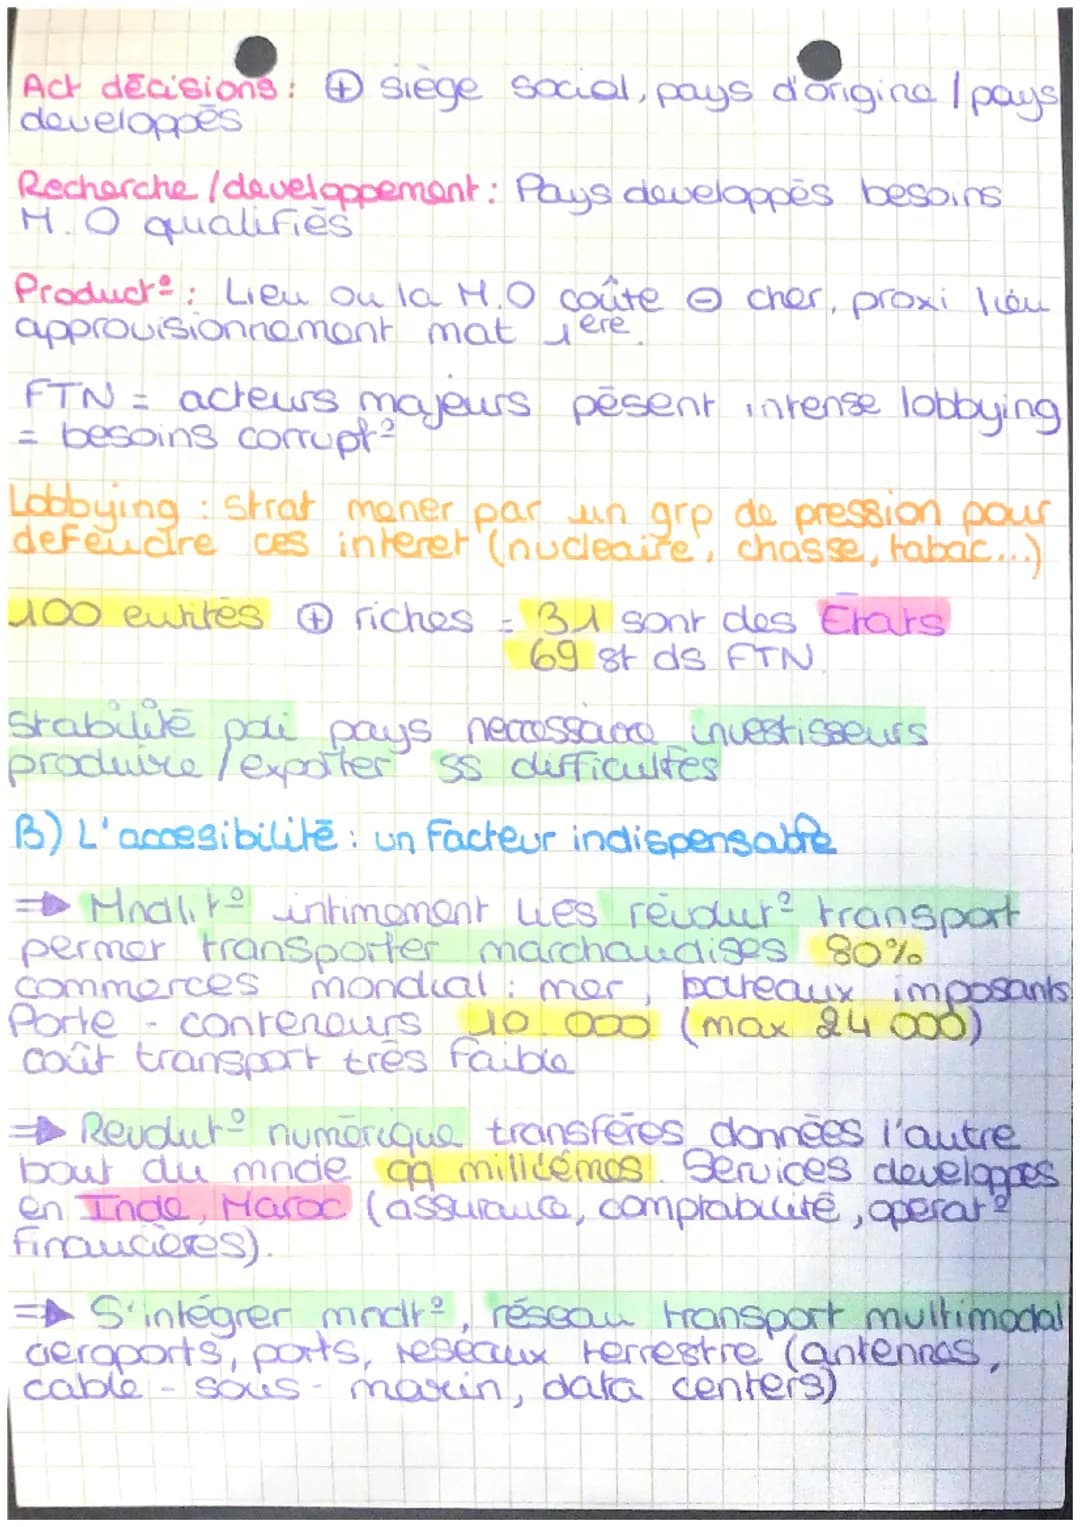 Act décisions : ⊕ siège social, pays d'origine / pays
developpés
Recherche / developpement : Pays developpés besoins
M.O qualifiés
Product° : Lieu ou la M.O coûte ⊖ cher, proxi lieu
approvisionnement mat 1ère.
FTN = acteurs majeurs pésent intense lobbying
= besoins corrupt°
Lobbying : Strat mener par un grp de pression pour
defendre ces interet (nucleaire, chasse, tabac...)
100 entités ⊕ riches = 31 sont des États
69 st ds FTN
Stabilité poli pays necessaire investisseurs
produire / exporter ss difficultés
B) L'accesibilité : un facteur indispensable
⇒ Mndlit° intimement liés révolut° transport
permet transporter marchandises 80%
commerces mondial : mer, bateaux imposants
Porte - conteneurs 10 000 (max 24 000)
coût transport trés faible
⇒ Revolut° numérique transféres données l'autre
bout du mnde qq millidémes. Services developpes
en Inde, Maroc (assurance, comptabilité, operat°
financières).
⇒ S'intégrer mndt°, réseau transport multimodal
aeroports, ports, reseaux terrestre (antennes,
cable - sous - marin, data centers)